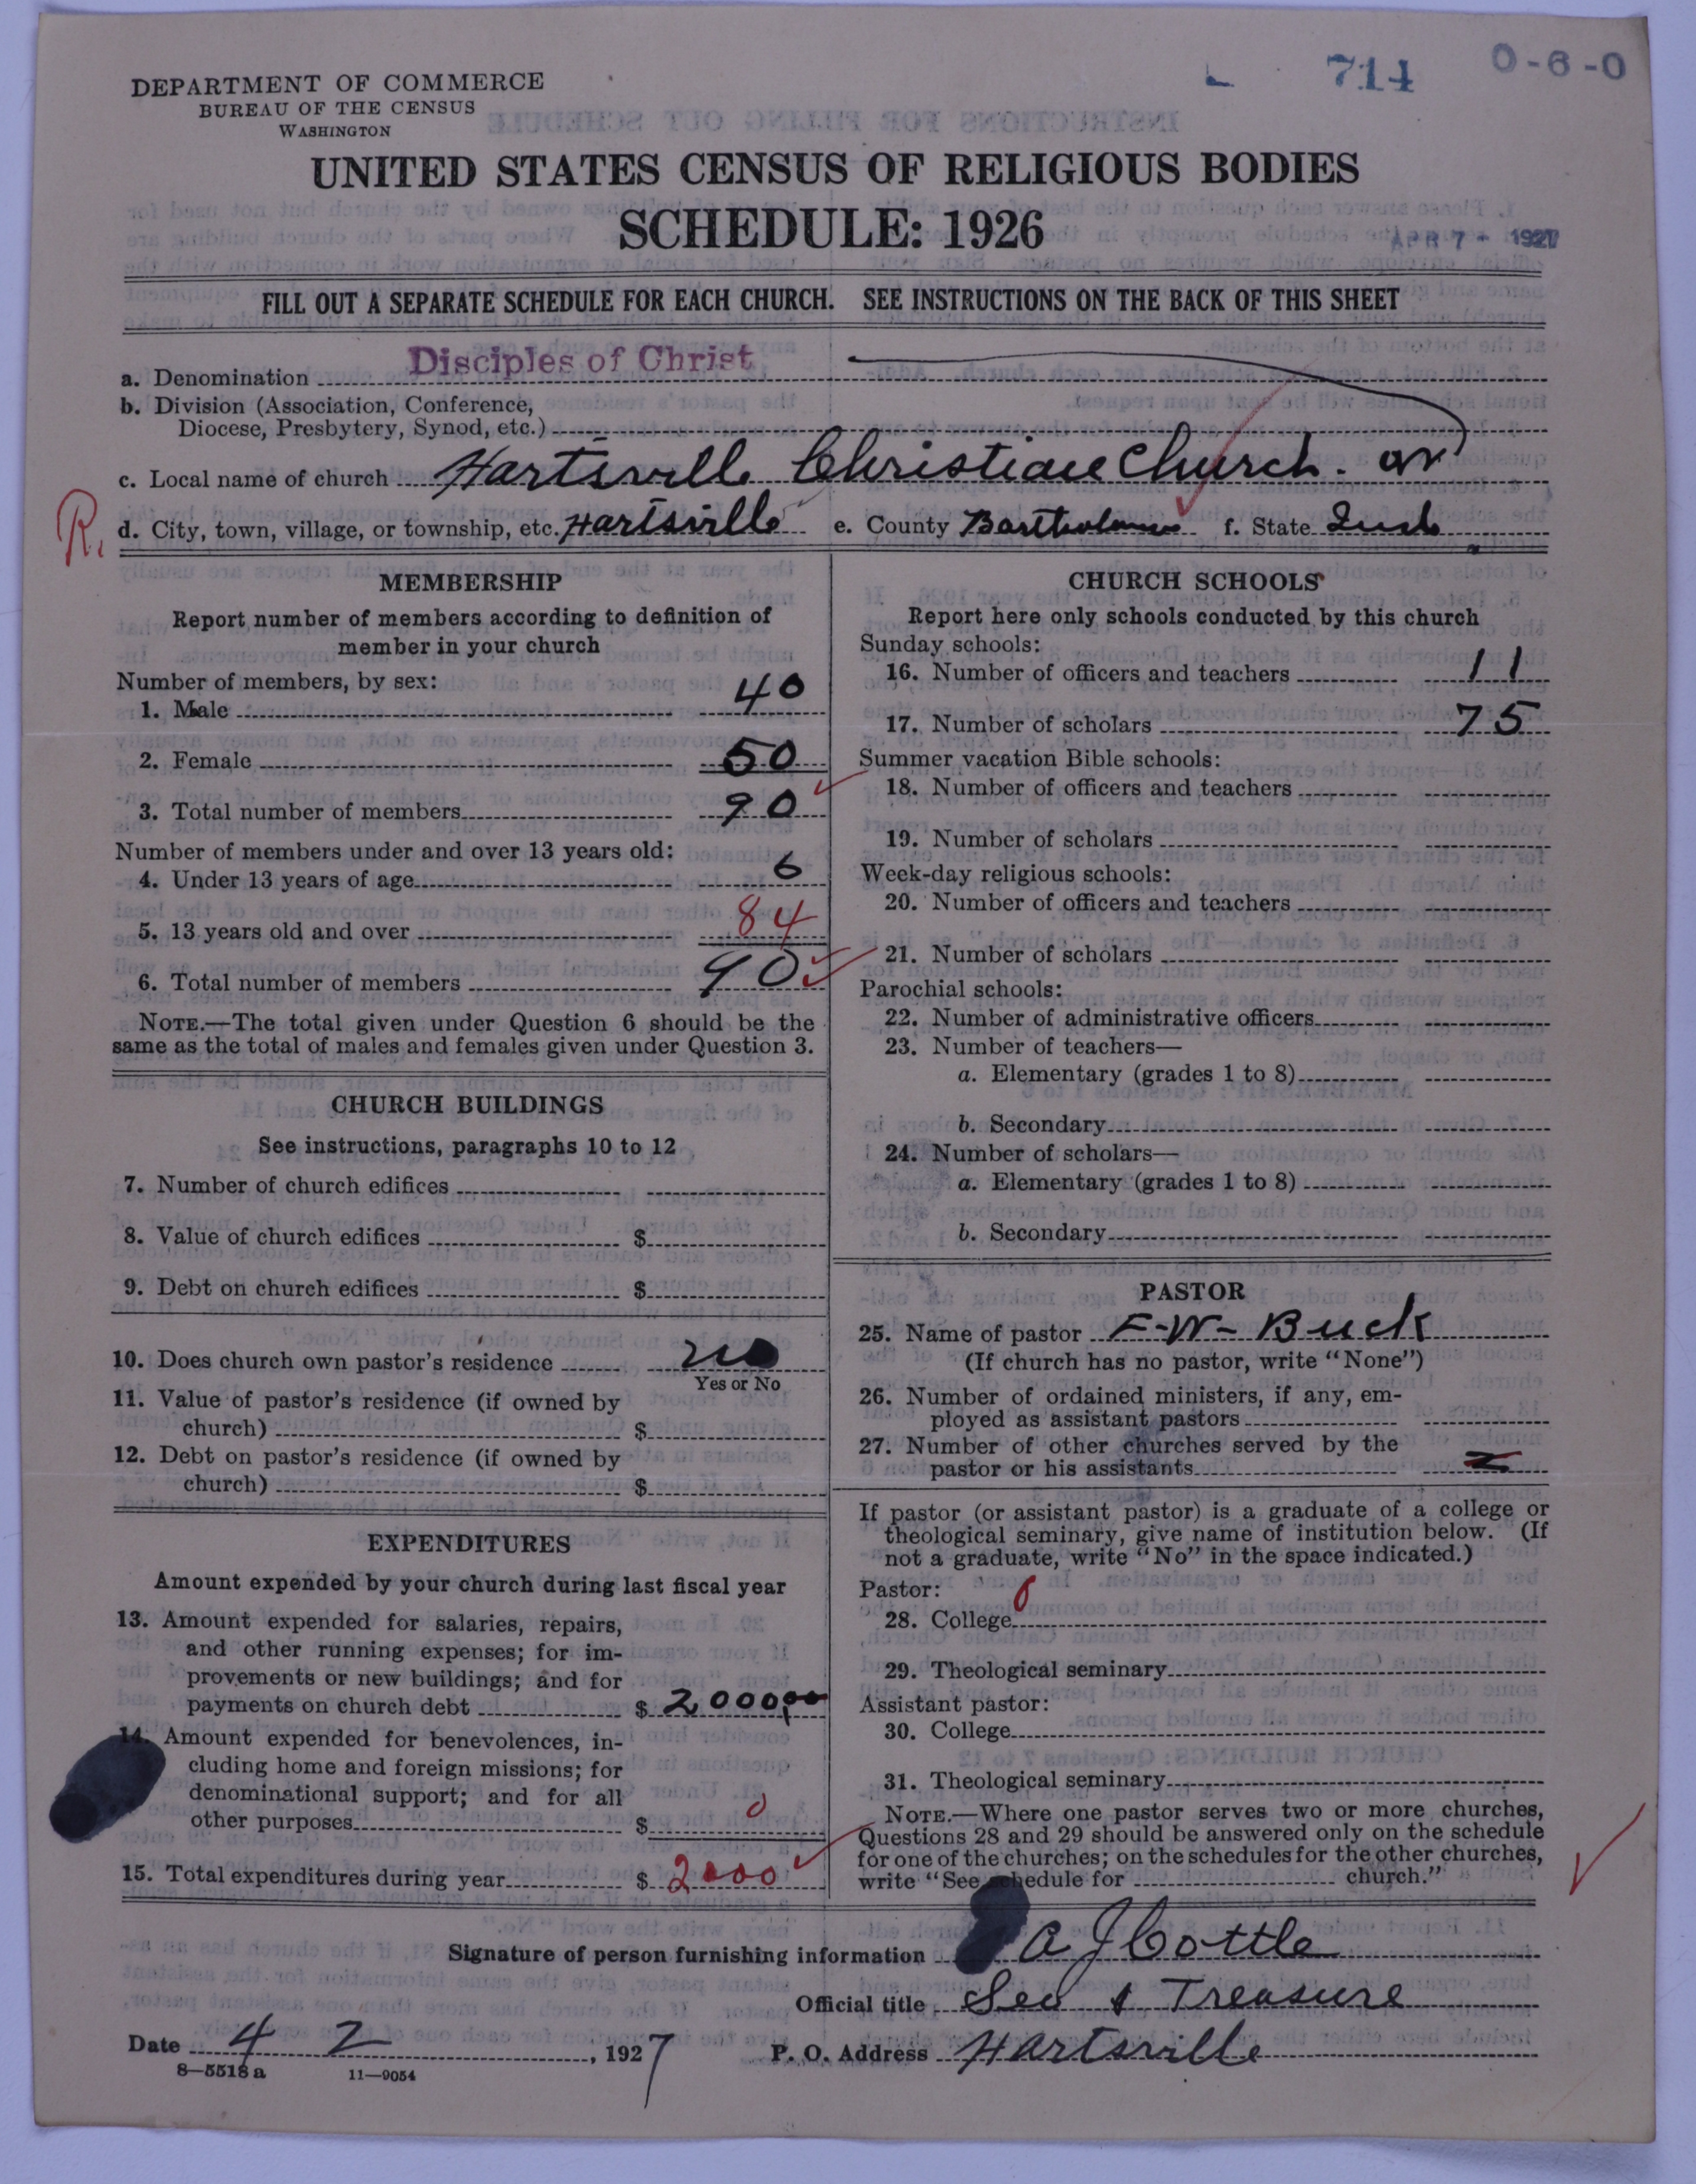 714 0-6-0
DEPARTMENT OF COMMERCE
BUREAU OF THE CENSUS
WASHINGTON
UNITED STATES CENSUS OF RELIGIOUS BODIES
SCHEDULE: 1926
APR 7 - 1927
FILL OUT A SEPARATE SCHEDULE FOR EACH CHURCH. SEE INSTRUCTIONS ON THE BACK OF THIS SHEET
a. Denomination Disciples of Christ
b. Division (Association, Conference,
Diocese, Presbytery, Synod, etc.)
c. Local name of church Hartsville Christian Church. or
R. d. City, town, village, or township, etc. Hartsville e. County Bartholomew f. State Ind.
MEMBERSHIP
Report number of members according to definition of
member in your church
Number of members, by sex:
1. Male 40
2. Female 50
3. Total number of members 90
Number of members under and over 13 years old:
4. Under 13 years of age 6
5. 13 years old and over 84
6. Total number of members 90
NOTE.—The total given under Question 6 should be the
same as the total of males and females given under Question 3.
CHURCH BUILDINGS
See instructions, paragraphs 10 to 12
7. Number of church edifices
8. Value of church edifices $
9. Debt on church edifices $
10. Does church own pastor's residence no
Yes or No
11. Value of pastor's residence (if owned by
church) $
12. Debt on pastor's residence (if owned by
church) $
EXPENDITURES
Amount expended by your church during last fiscal year
13. Amount expended for salaries, repairs,
and other running expenses; for im-
provements or new buildings; and for
payments on church debt $ 2000.00
14. Amount expended for benevolences, in-
cluding home and foreign missions; for
denominational support; and for all
other purposes $ 0
15. Total expenditures during year $ 2000
CHURCH SCHOOLS
Report here only schools conducted by this church
Sunday schools:
16. Number of officers and teachers 11
17. Number of scholars 75
Summer vacation Bible schools:
18. Number of officers and teachers
19. Number of scholars
Week-day religious schools:
20. Number of officers and teachers
21. Number of scholars
Parochial schools:
22. Number of administrative officers
23. Number of teachers—
a. Elementary (grades 1 to 8)
b. Secondary
24. Number of scholars—
a. Elementary (grades 1 to 8)
b. Secondary
PASTOR
25. Name of pastor F-W- Buck
(If church has no pastor, write "None")
26. Number of ordained ministers, if any, em-
ployed as assistant pastors
27. Number of other churches served by the
pastor or his assistants
If pastor (or assistant pastor) is a graduate of a college or
theological seminary, give name of institution below. (If
not a graduate, write "No" in the space indicated.)
Pastor: 0
28. College
29. Theological seminary
Assistant pastor:
30. College
31. Theological seminary
NOTE.—Where one pastor serves two or more churches,
Questions 28 and 29 should be answered only on the schedule
for one of the churches; on the schedules for the other churches,
write "See schedule for church."
Signature of person furnishing information A J Cottle
Official title Sec & Treasure
Date 4 2, 1927 P. O. Address Hartsville
8—5518 a 11—9054